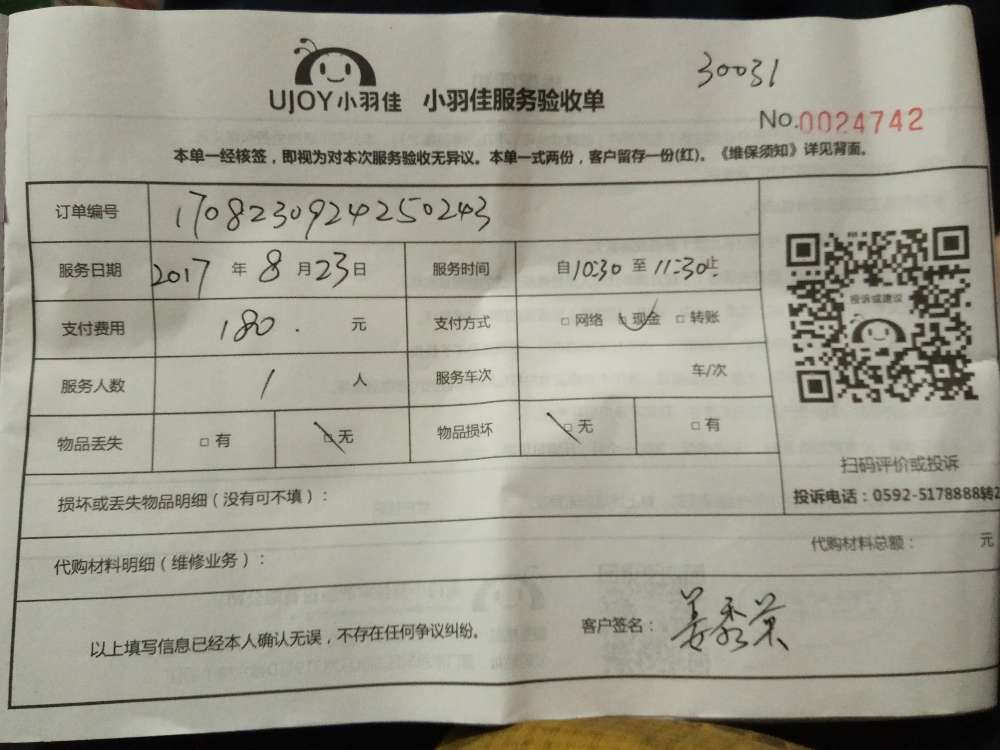 30031
UJOY小羽佳 小羽佳服务验收单
No.0024742
本单一经核签，即视为对本次服务验收无异议。本单一式两份，客户留存一份(红)。《维保须知》详见背面。
订单编号 1708230924250243
服务日期 2017 年 8 月 23 日 服务时间 自 10:30 至 11:30 止
支付费用 180. 元 支付方式 □ 网络 □ 现金 □ 转账
服务人数 1 人 服务车次 车/次
物品丢失 □ 有 □ 无 物品损坏 □ 无 □ 有
投诉或建议
扫码评价或投诉
投诉电话：0592-5178888转2
损坏或丢失物品明细（没有可不填）：
代购材料明细（维修业务）： 代购材料总额： 元
以上填写信息已经本人确认无误，不存在任何争议纠纷。 客户签名：姜秀英